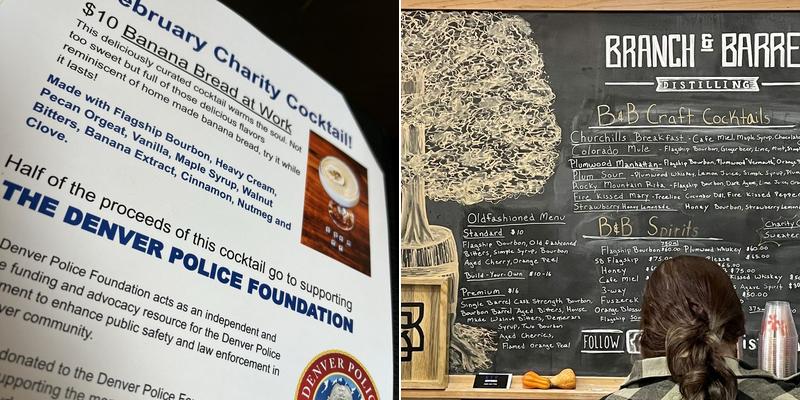 February Charity Cocktail!
$10 Banana Bread at Work
This deliciously curated cocktail warms the soul. Not
too sweet but full of those delicious flavors
reminiscent of home made banana bread, try it while
it lasts!
Made with Flagship Bourbon, Heavy Cream,
Pecan Orgeat, Vanilla, Maple Syrup, Walnut
Bitters, Banana Extract, Cinnamon, Nutmeg and
Clove.
Half of the proceeds of this cocktail go to supporting
THE DENVER POLICE FOUNDATION
Denver Police Foundation acts as an independent and
e funding and advocacy resource for the Denver Police
ment to enhance public safety and law enforcement in
ver community.
donated to the Denver Police Fo
supporting the
DENVER POLIC
BRANCH & BARRE
DISTILLING
B&B Craft Cocktails
Churchills Breakfast - Cafe Miel, Maple Syrup, Chocola
Colorado Mule - Flagship Bourbon, Gingerbeer, Lime, Mint, Simp
Plumwood Manhattan - Flagship Bourbon, Plumwood Vermouth, Orange
Plum Sour - Plumwood Whiskey, Lemon Juice, Simple Syrup, Plum
Rocky Mountain Rita - Flagship Bourbon, Dark Agave, Lime Juice
Fire Kissed Mary - Treeline Cucumber Dill, Fire Kissed Pepper
Strawberry Honey Lemonade - Honey Bourbon, Strawberry
B&B Spirits
750ml
Flagship Bourbon $60.00 Plumwood Whiskey $60.00
SB Flagship $75.00
Honey
Cafe Miel
3-way
Fuszerek
Orange Blosso
Flagship
$75.00
Kissed Whiskey
Agave Spirit
$50.00
Charity C
Sweater
375ml
Oldfashioned Menu
Standard $10
Flagship Bourbon, Old fashioned
Bitters, Simple Syrup,
Aged Cherry, Orange Peel
Build-Your-Own $10-16
Premium $16
Single Barrel Cask Strength Bourbon,
Bourbon Barrel Aged Bitters, House
Made Walnut Bitters, Demerara
Syrup, Two Bourbon
Aged Cherries,
Flamed Orange Peel
FOLLOW